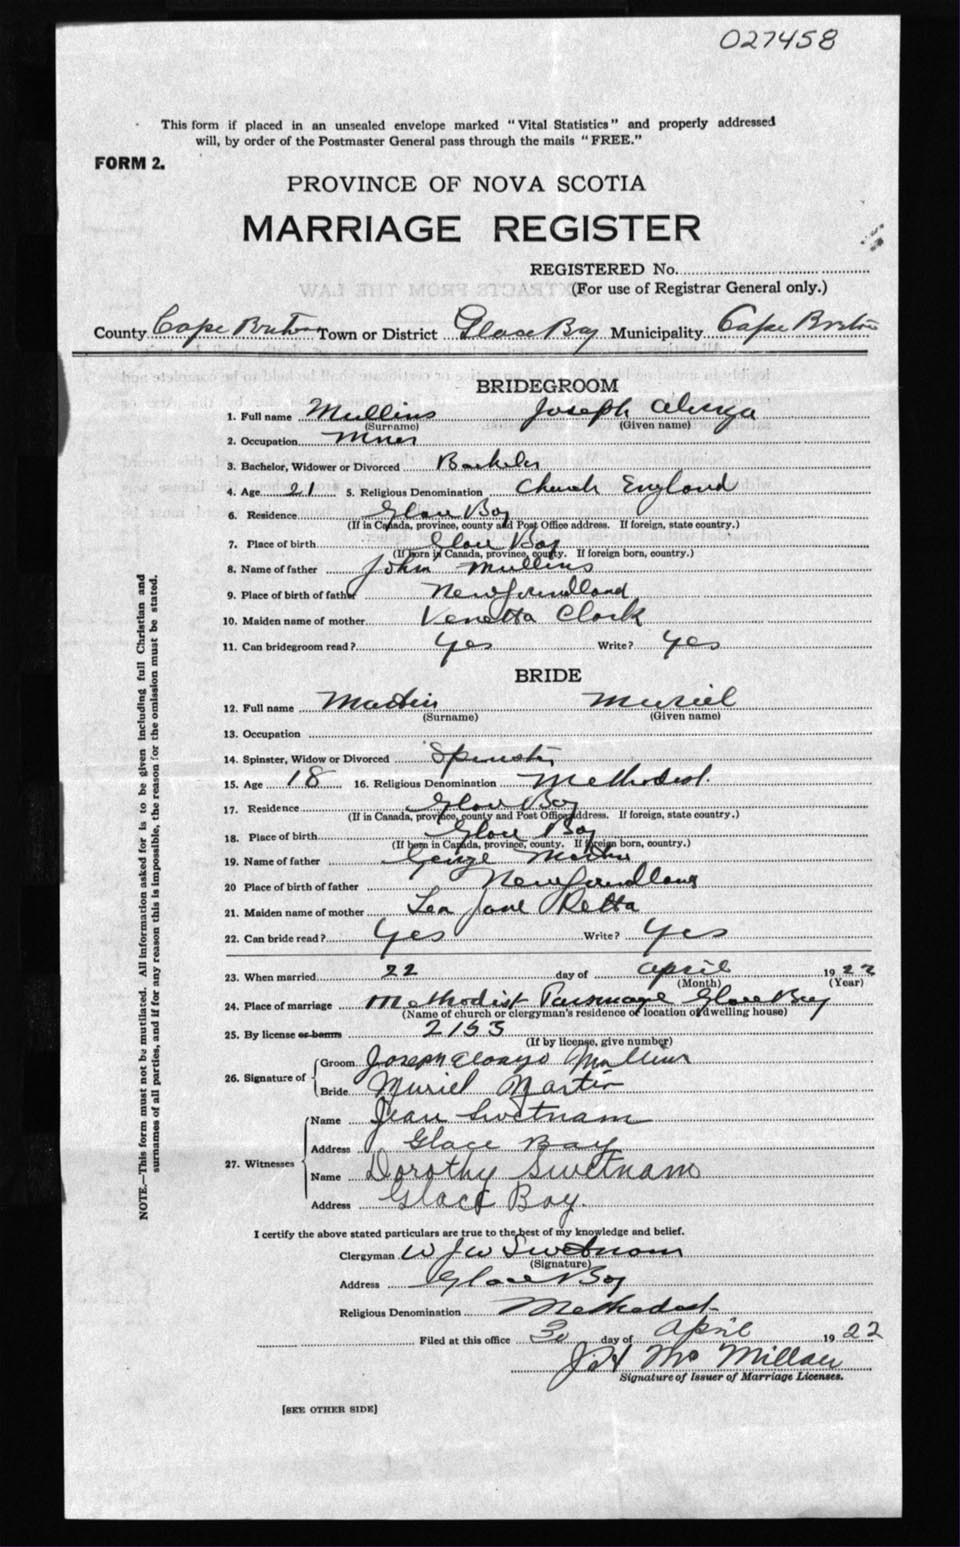 027458
This form if placed in an unsealed envelope marked "Vital Statistics" and properly addressed
will, by order of the Postmaster General pass through the mails "FREE."
FORM 2.
PROVINCE OF NOVA SCOTIA
MARRIAGE REGISTER
REGISTERED No.
(For use of Registrar General only.)
County Cape Breton Town or District Glace Bay Municipality Cape Breton
BRIDEGROOM
1. Full name Mullins Joseph
(Surname) (Given name)
2. Occupation Miner
3. Bachelor, Widower or Divorced Bachelor
4. Age 21 5. Religious Denomination Church England
6. Residence Glace Bay
(If in Canada, province, county and Post Office address. If foreign, state country.)
7. Place of birth Glace Bay
(If born in Canada, province, county. If foreign born, country.)
8. Name of father John Mullins
9. Place of birth of father Newfoundland
10. Maiden name of mother Venetta Clark
11. Can bridegroom read? Yes Write? Yes
BRIDE
12. Full name Martin Muriel
(Surname) (Given name)
13. Occupation
14. Spinster, Widow or Divorced Spinster
15. Age 18 16. Religious Denomination Methodist
17. Residence Glace Bay
(If in Canada, province, county and Post Office address. If foreign, state country.)
18. Place of birth Glace Bay
(If born in Canada, province, county. If foreign born, country.)
19. Name of father George Martin
20 Place of birth of father Newfoundland
21. Maiden name of mother Jane
22. Can bride read? Yes Write? Yes
23. When married 22 day of April 1922
(Month) (Year)
24. Place of marriage Methodist Parsonage Glace Bay
(Name of church or clergyman's residence or location of dwelling house)
25. By license or banns 2153
(If by license, give number)
26. Signature of Groom Joseph Mullins
Bride Muriel Martin
27. Witnesses Name Jean Swetnam
Address Glace Bay
Name Dorothy Swetnam
Address Glace Bay.
I certify the above stated particulars are true to the best of my knowledge and belief.
Clergyman W J W Swetnam
(Signature)
Address Glace Bay
Religious Denomination Methodist
Filed at this office day of April 1922
McMillan
Signature of Issuer of Marriage Licenses.
[SEE OTHER SIDE]
NOTE.—This form must not be mutilated. All information asked for is to be given including full Christian and
surnames of all parties, and if for any reason this is impossible, the reason for the omission must be stated.